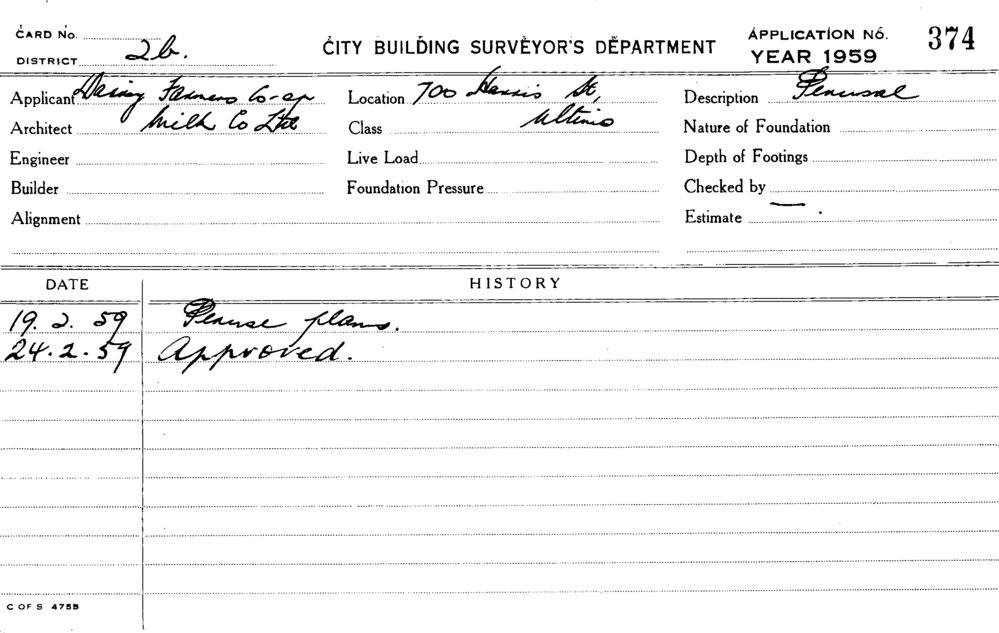 CARD No.
DISTRICT 2b.
CITY BUILDING SURVEYOR'S DEPARTMENT
APPLICATION No. 374
YEAR 1959
Applicant Dairy Farmers Co-op
Milk Co Ltd
Architect
Engineer
Builder
Alignment
Location 700 Harris St,
Ultimo
Class
Live Load
Foundation Pressure
Description Perusal
Nature of Foundation
Depth of Footings
Checked by
Estimate —
DATE HISTORY
19. 2. 59 Peruse plans.
24.2.59 Approved.
C OF S 4755